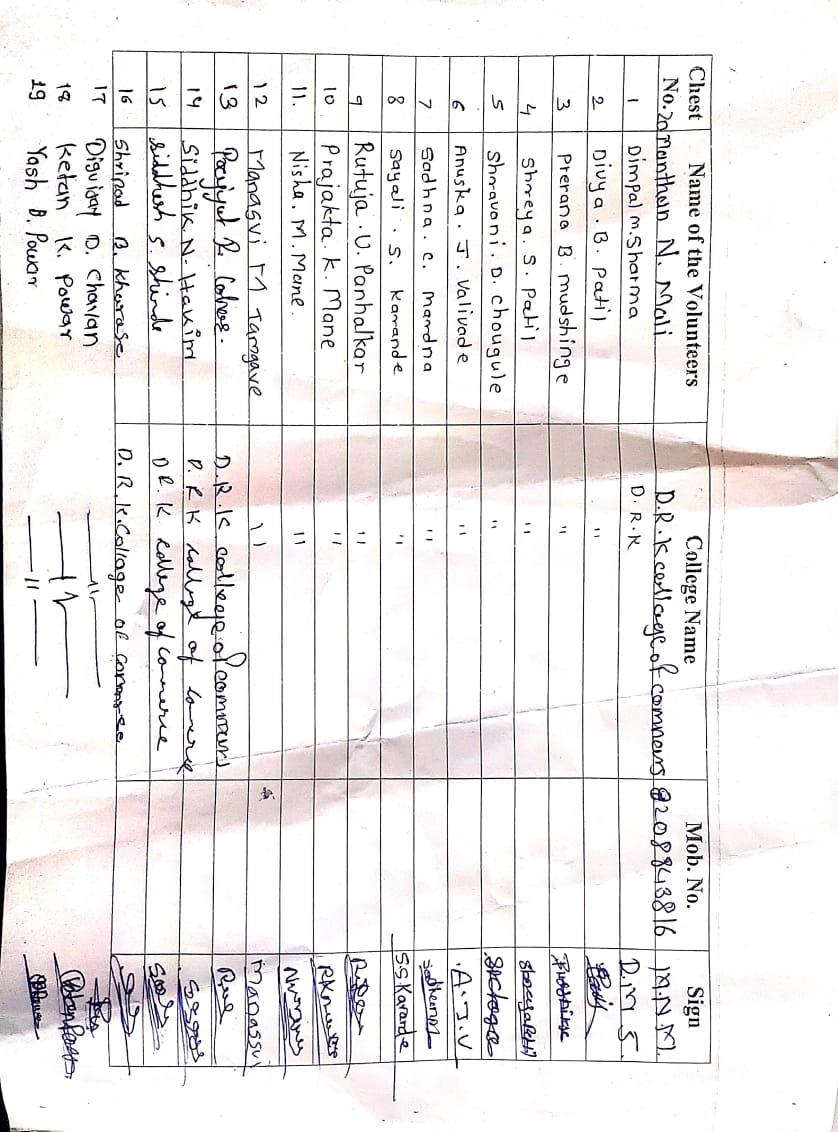 Chest No. Name of the Volunteers College Name Mob. No. Sign
20 Manthan N. Mali D.R.K college of commers 8208843816 M.N.M.
1 Dimpal m. Sharma D.R.K D.M S.
2 Divya . B. patil "
3 Prerana B. mudshinge "
4 Shreya. S. Patil "
5 Shravani. D. chougule "
6 Anuska. J. Valivade " A.J.V
7 Sadhna. C. mandna "
8 Sayali . S. Karande " S.S.Karande
9 Rutuja . U. Panhalkar "
10 Prajakta. K. Mane "
11. Nisha. M. Mane. "
12 Manasvi M Tamgave " manassvi
13 D.R.K college of commers
14 Siddhik. N. Hakim D. R K college of comerce
15 Siddhesh S. Shinde D R. K college of commerce
16 Shripad B. Kharase D. R. K. Collage of Commrse
17 Digvijay D. Chavan — " —
18 Ketan K. Powar — " —
19 Yash D. Powar — " —